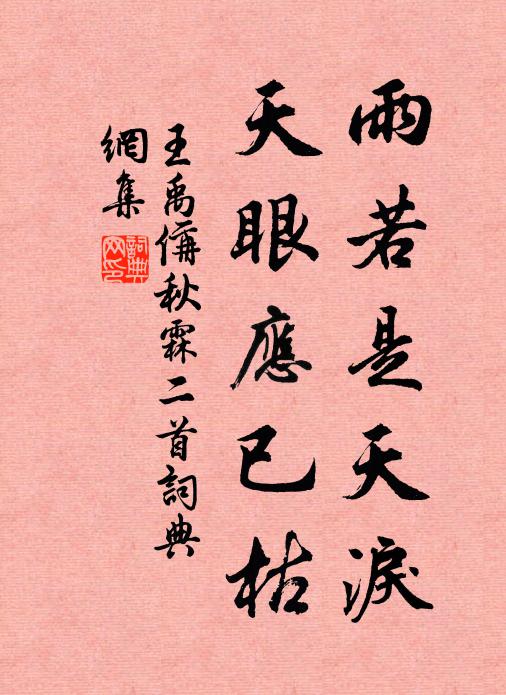 雨若是天淚
天眼應已枯
王禹偁秋霖二首詞典
網集
詞典
网印